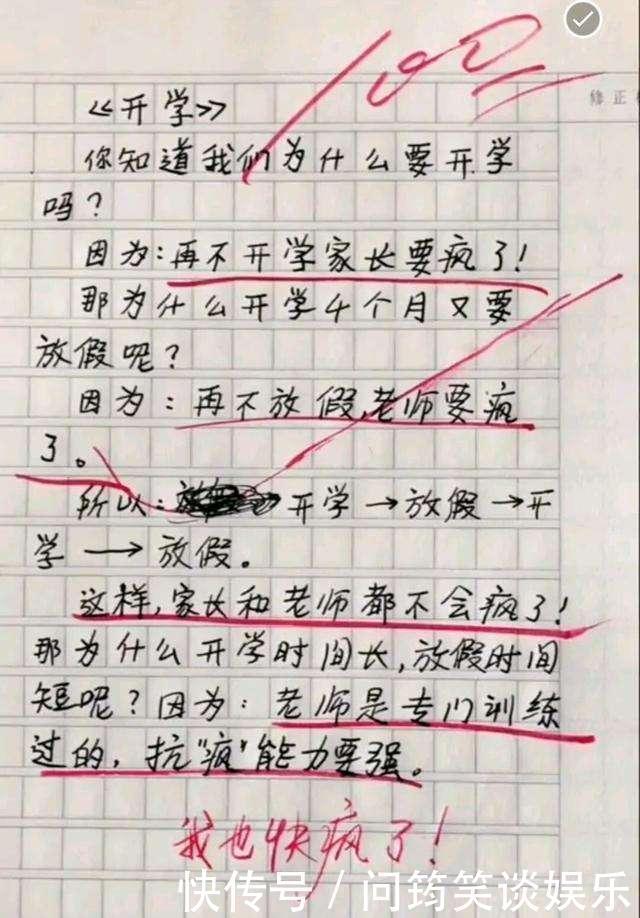 100
修正
《开学》
你知道我们为什么要开学
吗？
因为：再不开学家长要疯了！
那为什么开学4个月又要
放假呢？
因为：再不放假，老师要疯
了。
所以：开学→放假→开
学→放假。
这样，家长和老师都不会疯了！
那为什么开学时间长，放假时间
短呢？因为：老师是专门训练
过的，抗“疯”能力要强。
我也快疯了！
快传号／问筠笑谈娱乐